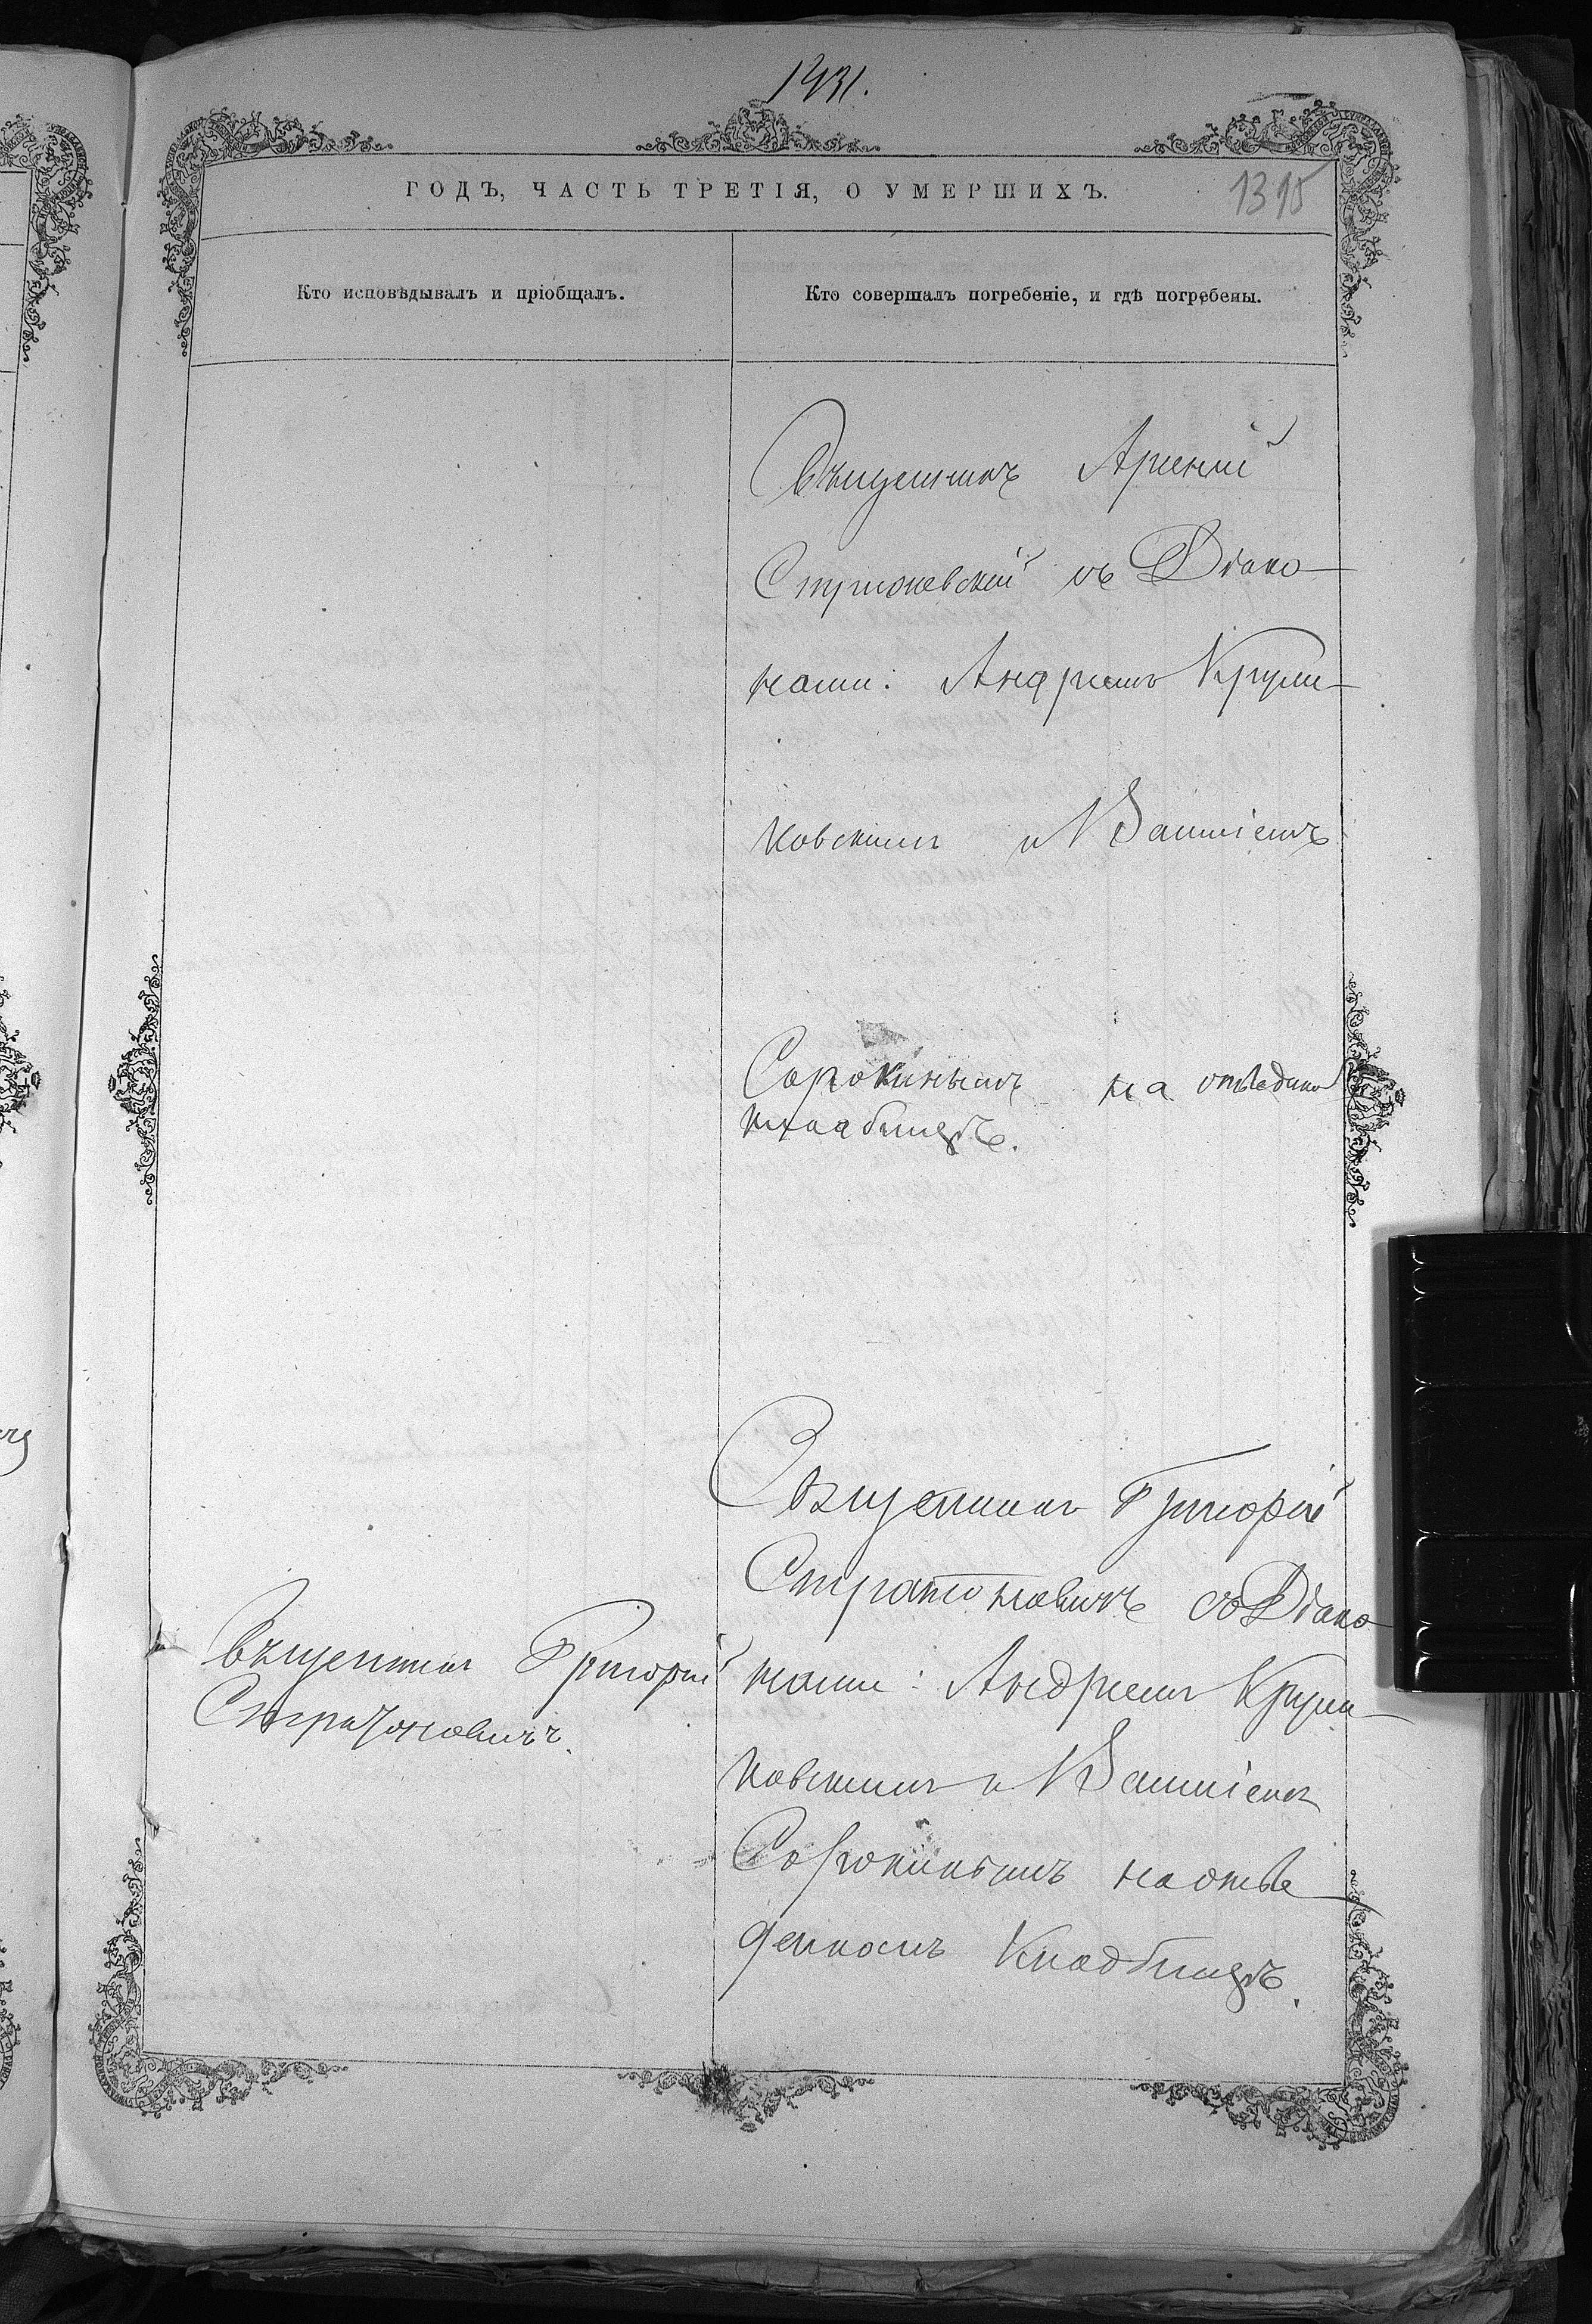 1431.
ГОДЪ, ЧАСТЬ ТРЕТІЯ, О УМЕРШИХЪ.
1315
Кто исповѣдывалъ и пріобщалъ.
Кто совершалъ погребеніе, и гдѣ погребены.
Священникъ Арсеній
съ Діако-
нами: Андреемъ Крули-
ковскимъ и Василіемъ
Сорокинымъ на отведен
кладбищѣ.
Священникъ Григорій
Стратоновичъ
Священникъ Григорій
Стратоновичъ со Діако
нами: Андреемъ Крули-
ковскимъ и Василіемъ
Сорокинымъ на отве
денномъ кладбищѣ.